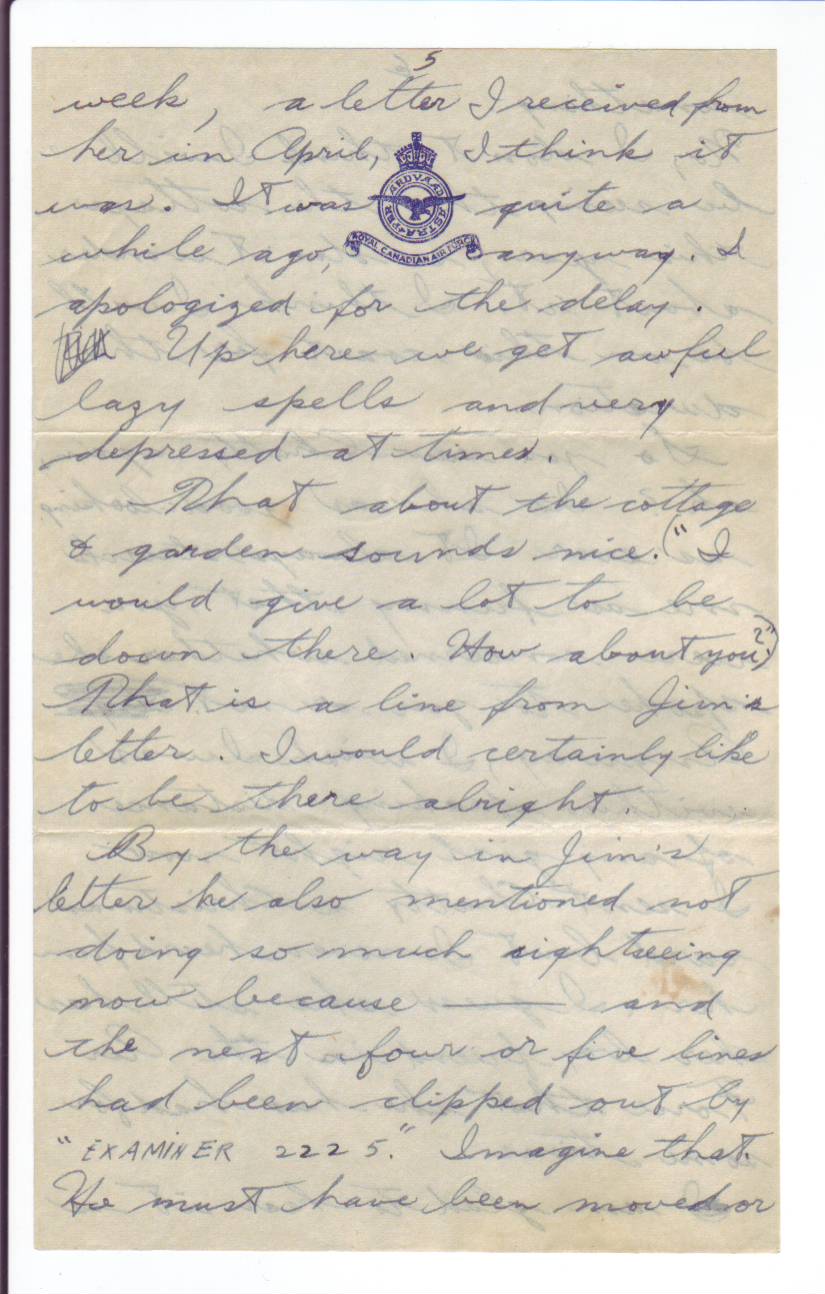 5
week, a letter I received from
her in April, I think it
was. It was quite a
while ago, anyway. I
apologized for the delay.
PER ARDUA AD ASTRA
ROYAL CANADIAN AIR FORCE
Up here we get awful
lazy spells and very
depressed at times.
That about the cottage
& garden sounds nice. ("I
would give a lot to be
down there. How about you?")
That is a line from Jim's
letter. I would certainly like
to be there alright.
By the way in Jim's
letter he also mentioned not
doing so much sightseeing
now because —— and
the next four or five lines
had been clipped out by
"EXAMINER 2225." Imagine that.
He must have been moved or